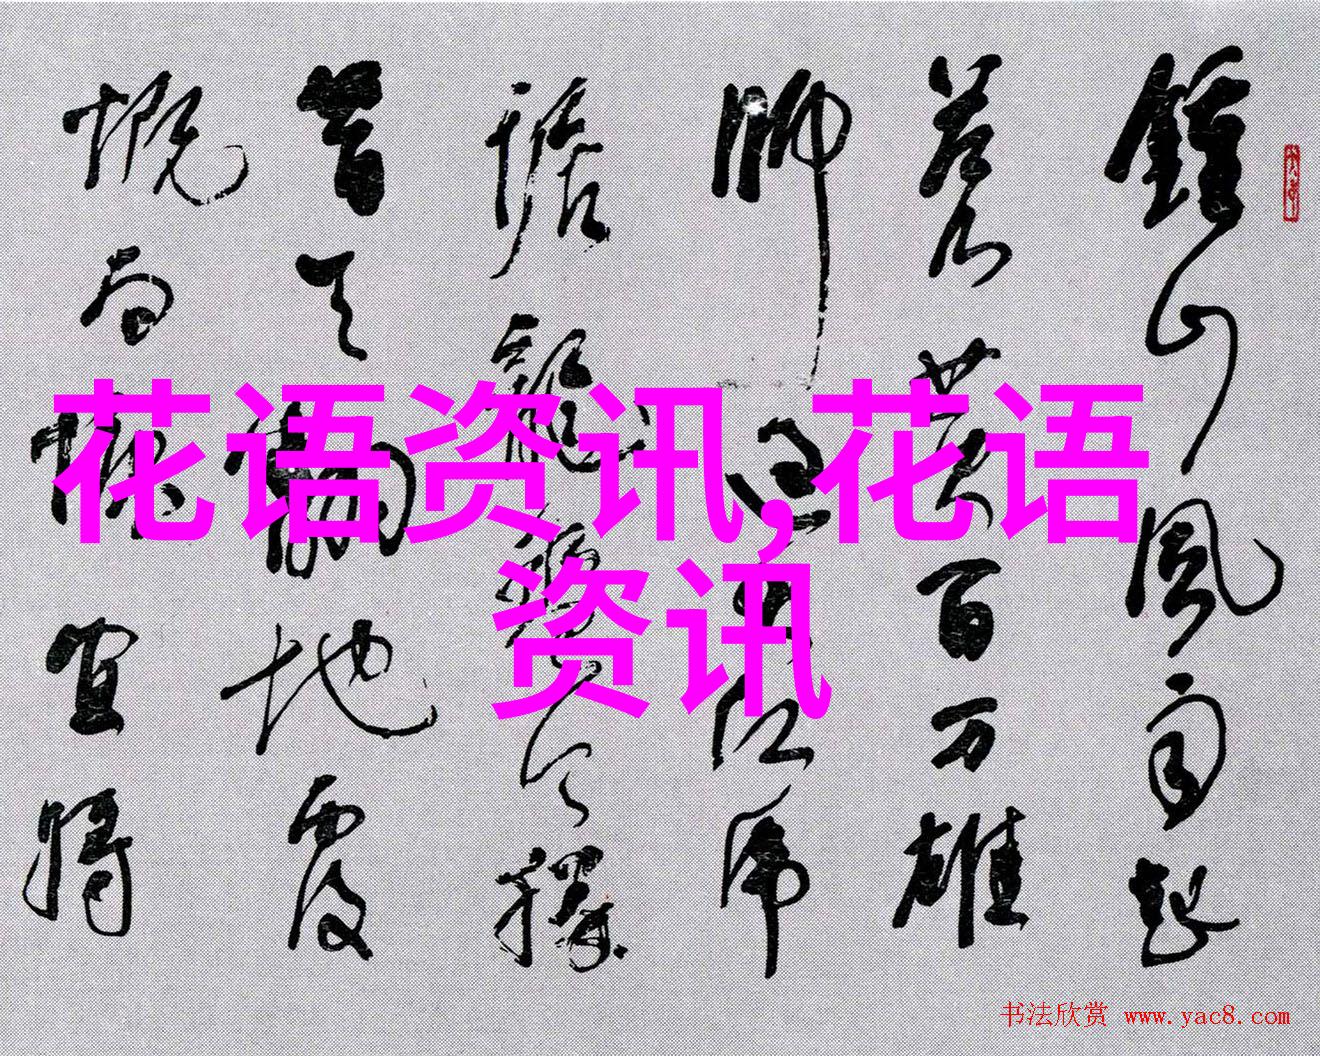 鍾山風雨起
苍黄百万雄
师过大江虎
踞龍盤今勝
昔天翻地覆
慨而慷宜将
花语资讯,花语
资讯
书法欣赏 www.yac8.com